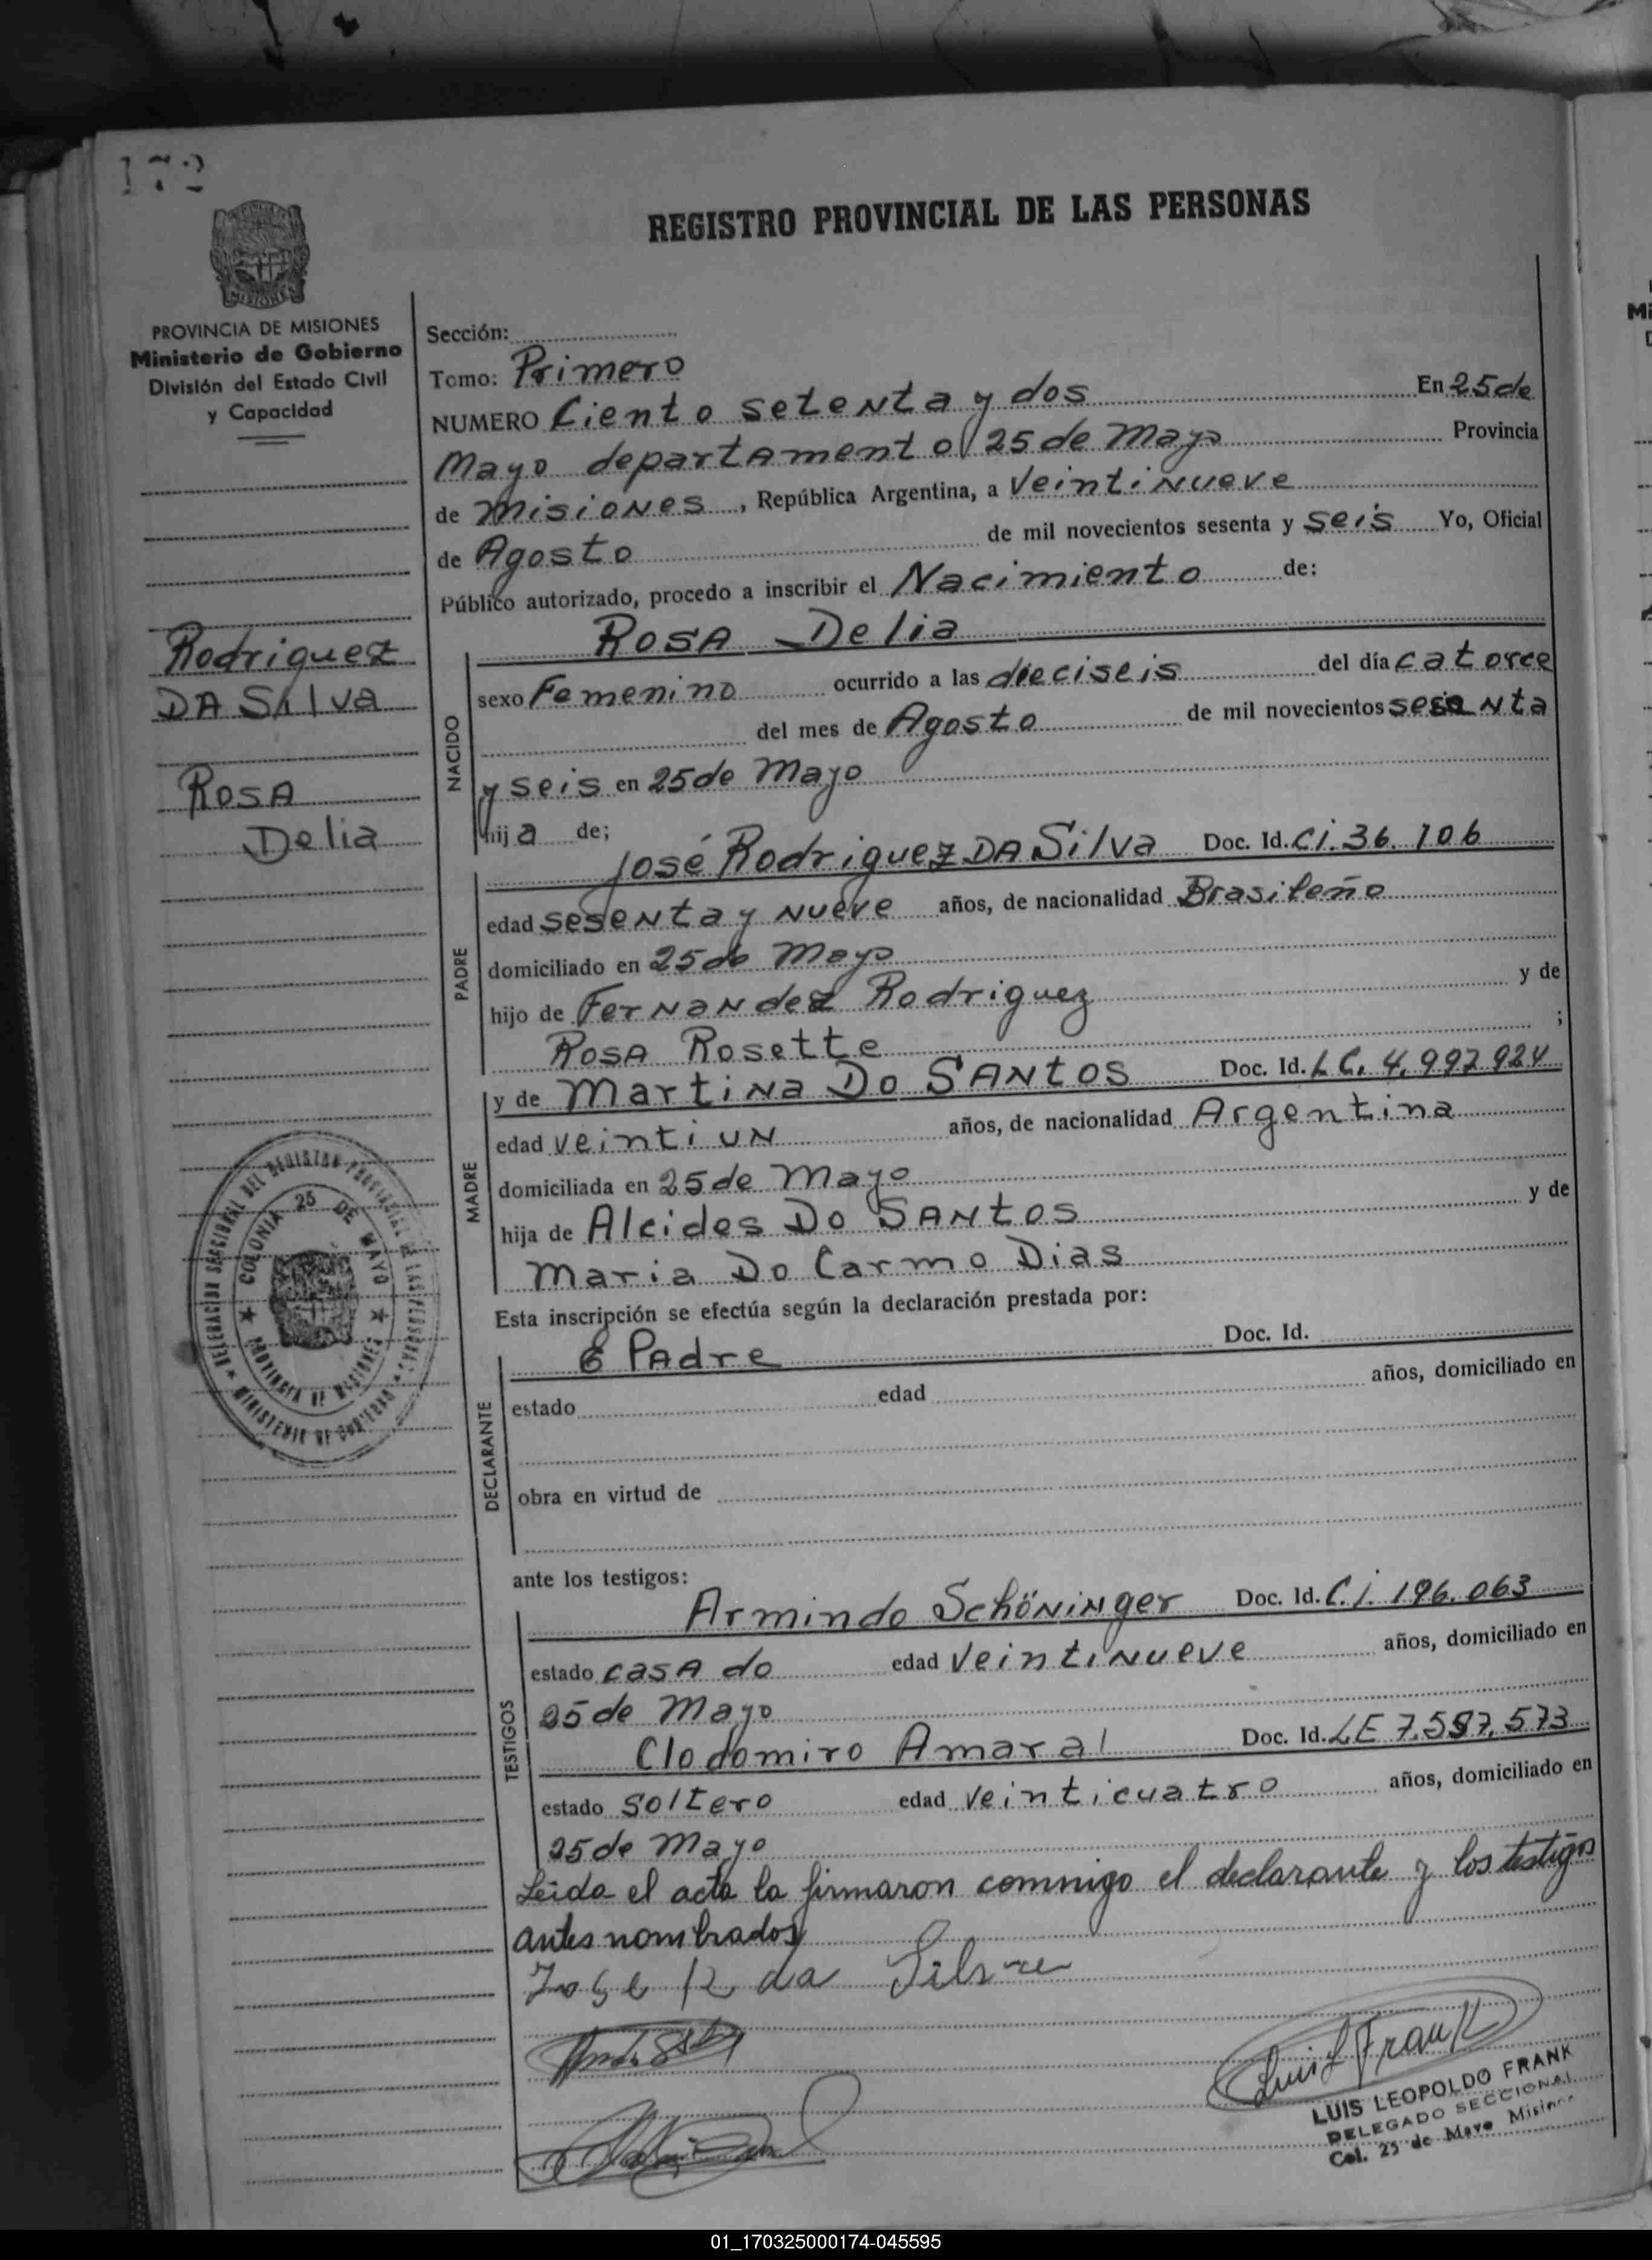 172
REGISTRO PROVINCIAL DE LAS PERSONAS
MISIONES
PROVINCIA DE MISIONES
Ministerio de Gobierno
División del Estado Civil
y Capacidad
Rodriguez
DA Silva
Rosa
Delia
Sección:
Tomo: Primero
NUMERO Ciento setenta y dos En 25 de
Mayo departamento 25 de Mayo Provincia
de Misiones, República Argentina, a Veintinueve
de Agosto de mil novecientos sesenta y seis Yo, Oficial
Público autorizado, procedo a inscribir el Nacimiento de:
Rosa Delia
NACIDO
sexo Femenino ocurrido a las dieciseis del día catorce
del mes de Agosto de mil novecientos sesenta
y seis en 25 de Mayo
hija de;
José Rodriguez DA Silva Doc. Id. Ci. 36.106
PADRE
edad sesenta y nueve años, de nacionalidad Brasileño
domiciliado en 25 de Mayo
hijo de Fernandez Rodriguez y de
Rosa Rosette ;
y de Martina Do Santos Doc. Id. LC. 4.992.924
MADRE
edad veintiun años, de nacionalidad Argentina
domiciliada en 25 de Mayo
hija de Alcides Do Santos y de
Maria Do Carmo Dias
Esta inscripción se efectúa según la declaración prestada por:
Padre Doc. Id.
DECLARANTE
estado edad años, domiciliado en
obra en virtud de
ante los testigos:
Armindo Schöninger Doc. Id. C.i. 196.063
TESTIGOS
estado casado edad Veintinueve años, domiciliado en
25 de Mayo
Clodomiro Amaral Doc. Id. LE 7.587.573
estado soltero edad Veinticuatro años, domiciliado en
25 de Mayo
Leida el acta la firmaron commigo el declarante y los testigos
antes nombrados
Jose R da Silva
Luis L Frank
LUIS LEOPOLDO FRANK
DELEGADO SECCIONAL
Col. 25 de Mayo Misiones
DELEGACION SECCIONAL DEL REGISTRO PROVINCIAL DE LAS PERSONAS
MINISTERIO DE GOBIERNO
COLONIA 25 DE MAYO
PROVINCIA DE MISIONES
Mi
01_170325000174-045595